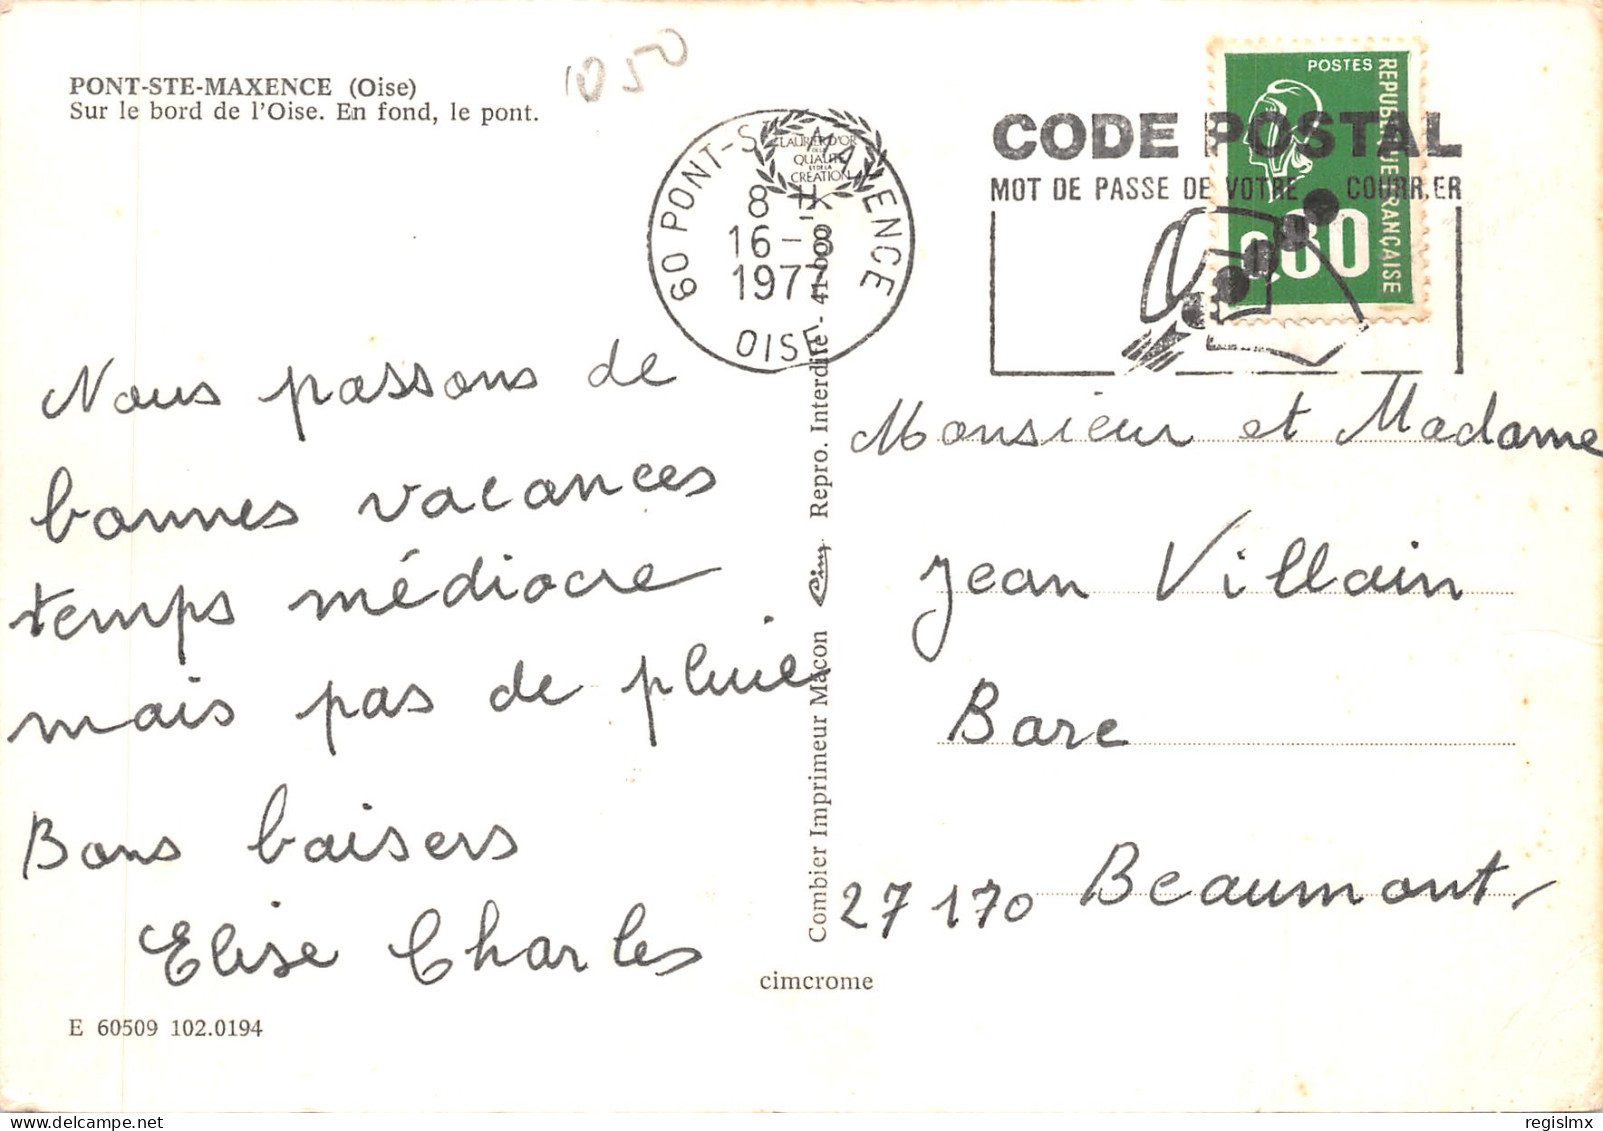 PONT-STE-MAXENCE (Oise)
Sur le bord de l'Oise. En fond, le pont.
1050
60 PONT-STE-MAXENCE
8 H
16-8
1977
OISE
LAURIER D'OR
DE LA
QUALITÉ
ET DE LA
CRÉATION
CODE POSTAL
MOT DE PASSE DE VOTRE COURRIER
POSTES
REPUBLIQUE FRANÇAISE
0,80
Nous passons de
bonnes vacances
temps médiocre
mais pas de pluie
Bons baisers
Elise Charles
Combier Imprimeur Mâcon Cim Repro. Interdite -
Monsieur et Madame
Jean Villain
Barc
27170 Beaumont
cimcrome
E 60509 102.0194
delcampe.net
regislmx